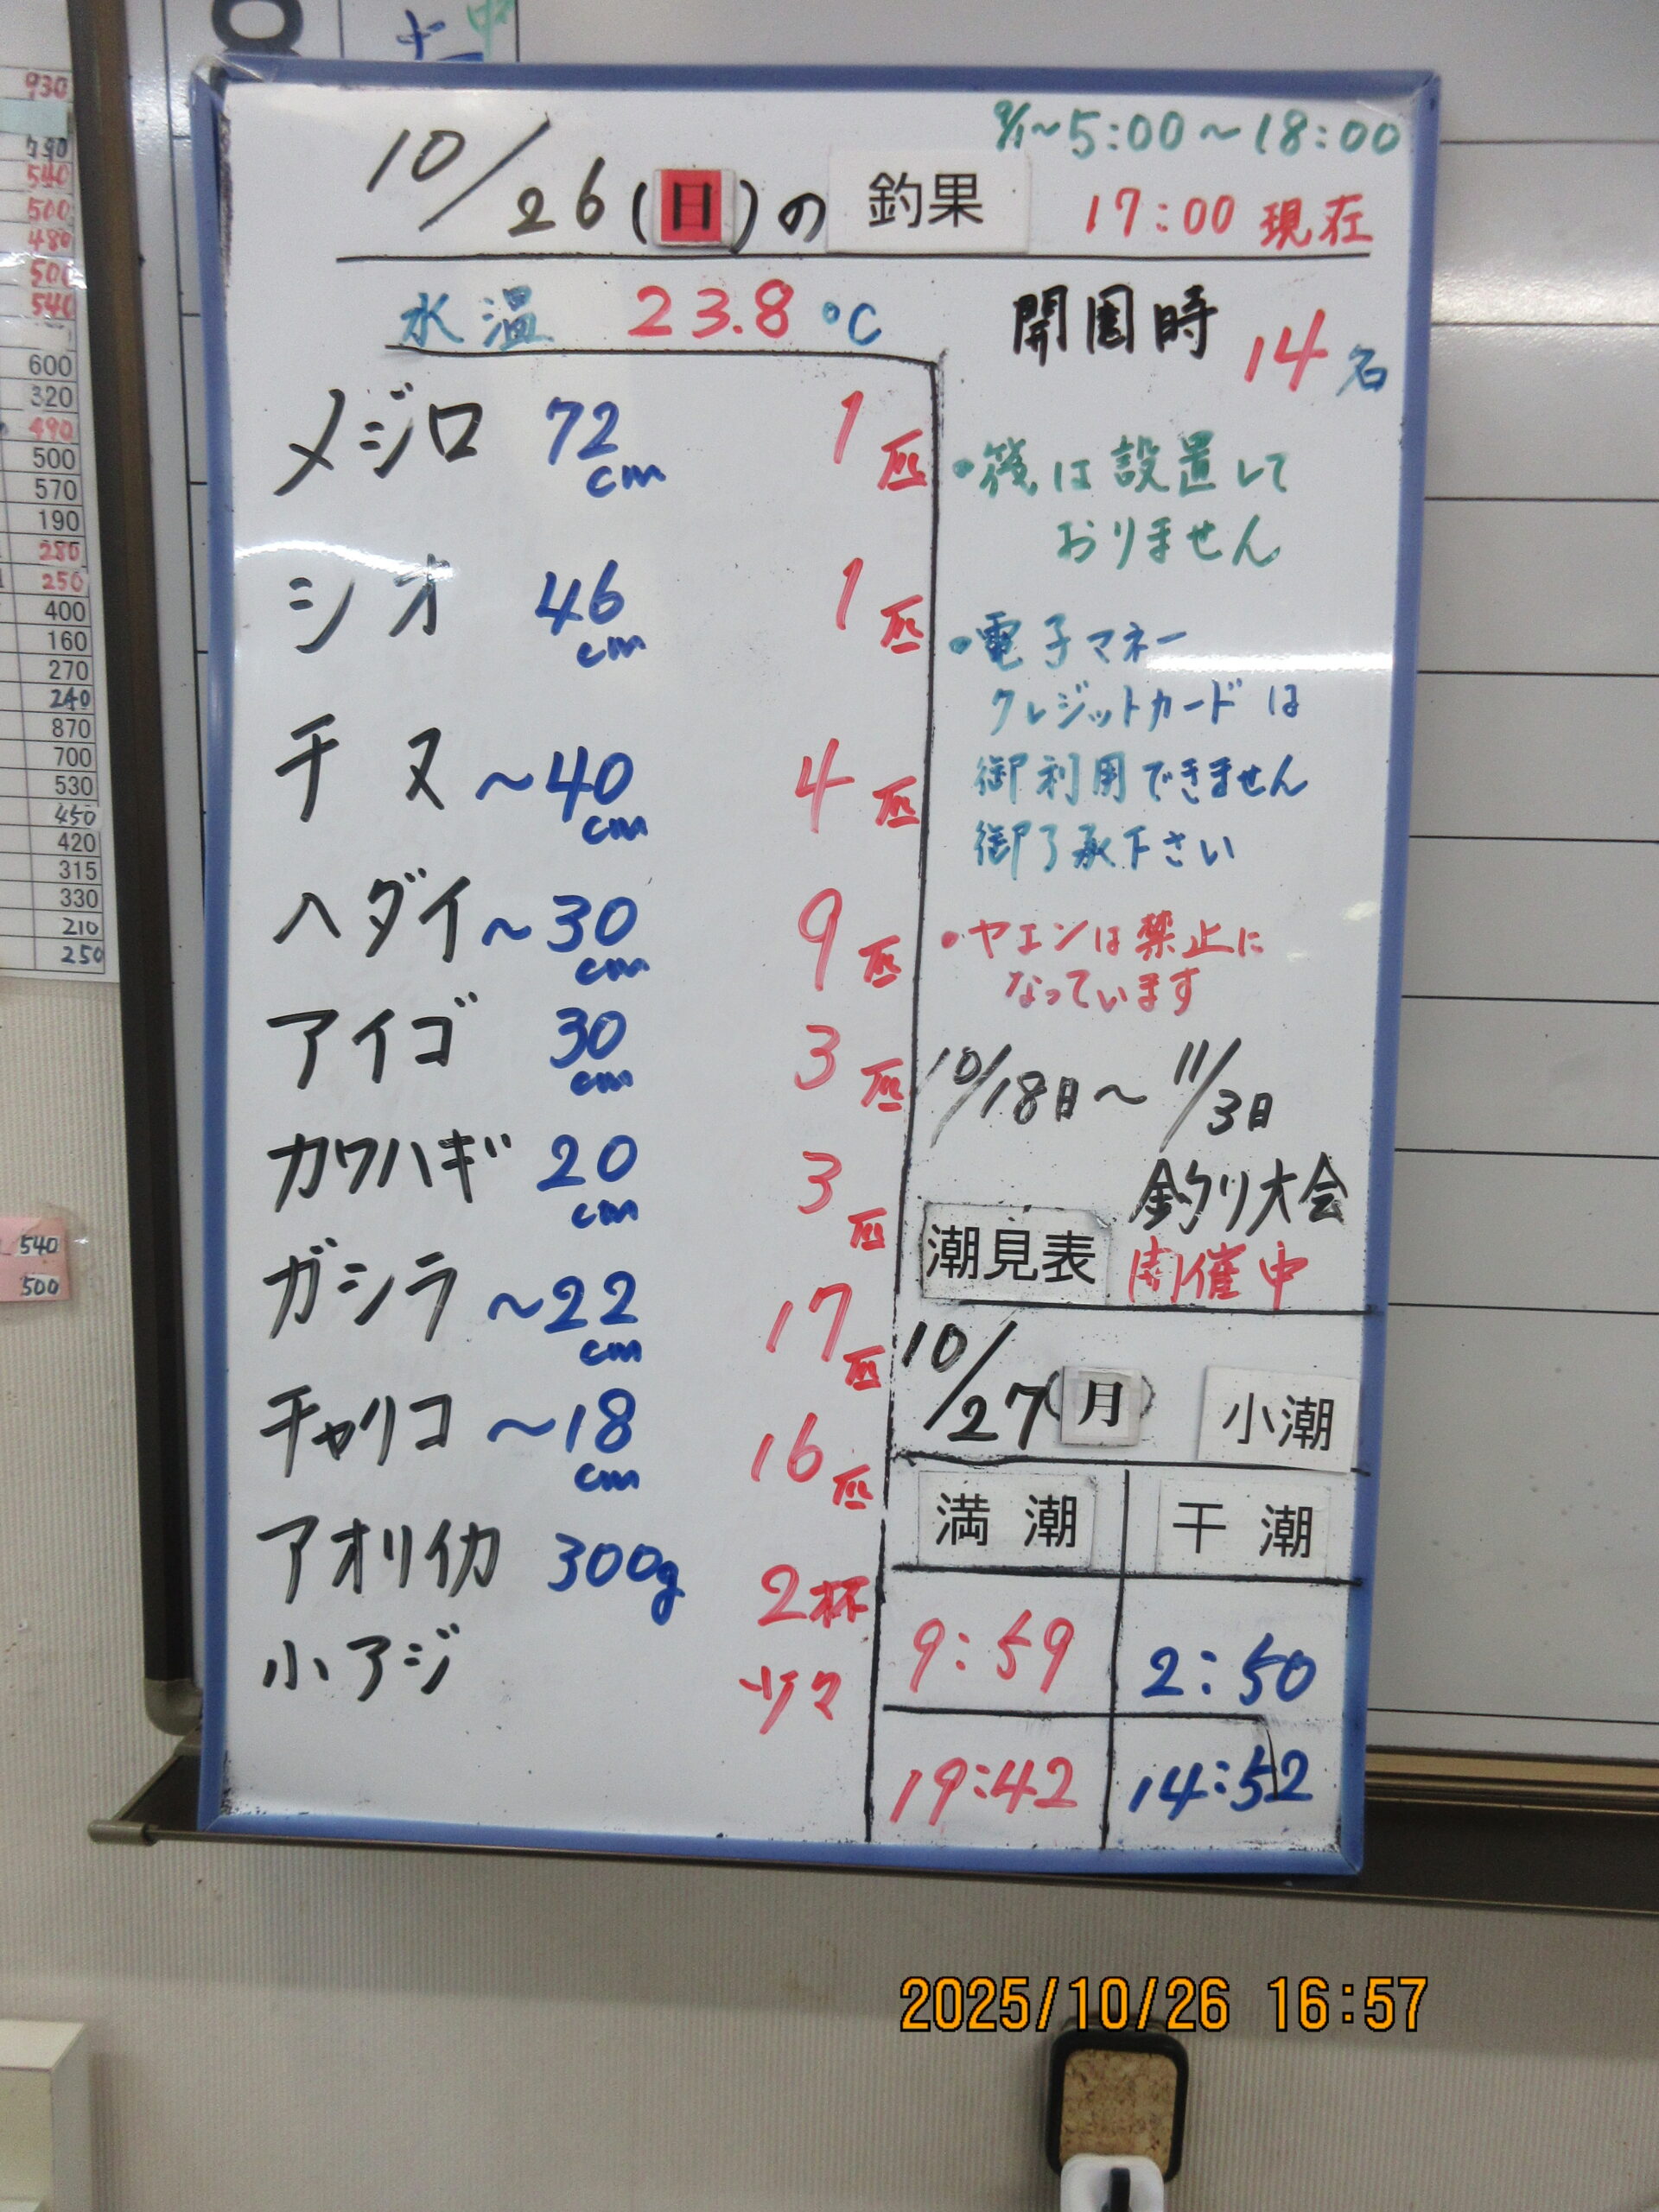 9/1~5:00~18:00
10/26(日)の釣果
17:00 現在
水温 23.8℃
開園時 14名
メジロ 72cm 1匹
シオ 46cm 1匹
チヌ ~40cm 4匹
ヘダイ ~30cm 9匹
アイゴ 30cm 3匹
カワハギ 20cm 3匹
ガシラ ~22cm 17匹
チャリコ ~18cm 16匹
アオリイカ 300g 2杯
小アジ 少々
・筏は設置して
おりません
・電子マネー
クレジットカードは
御利用できません
御了承下さい
・ヤエンは禁止に
なっています
10/18日~11/3日
釣り大会
開催中
潮見表
10/27(月) 小潮
満潮 干潮
9:59 2:50
19:42 14:52
2025/10/26 16:57
930
790
540
500
480
500
540
600
320
490
500
570
190
280
250
400
160
270
240
870
700
530
450
420
315
330
210
250
540
500